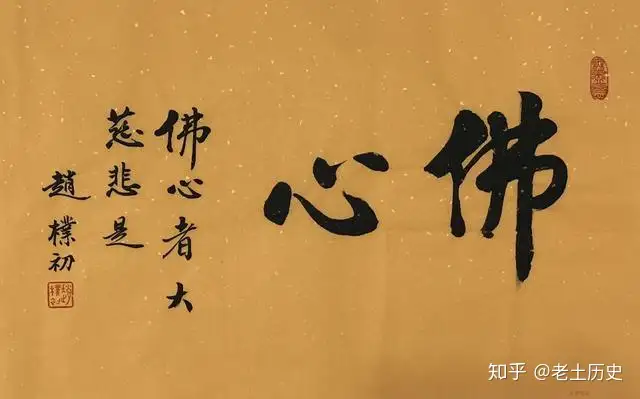 佛心
佛心者大
慈悲是
趙樸初
知乎 @老土历史